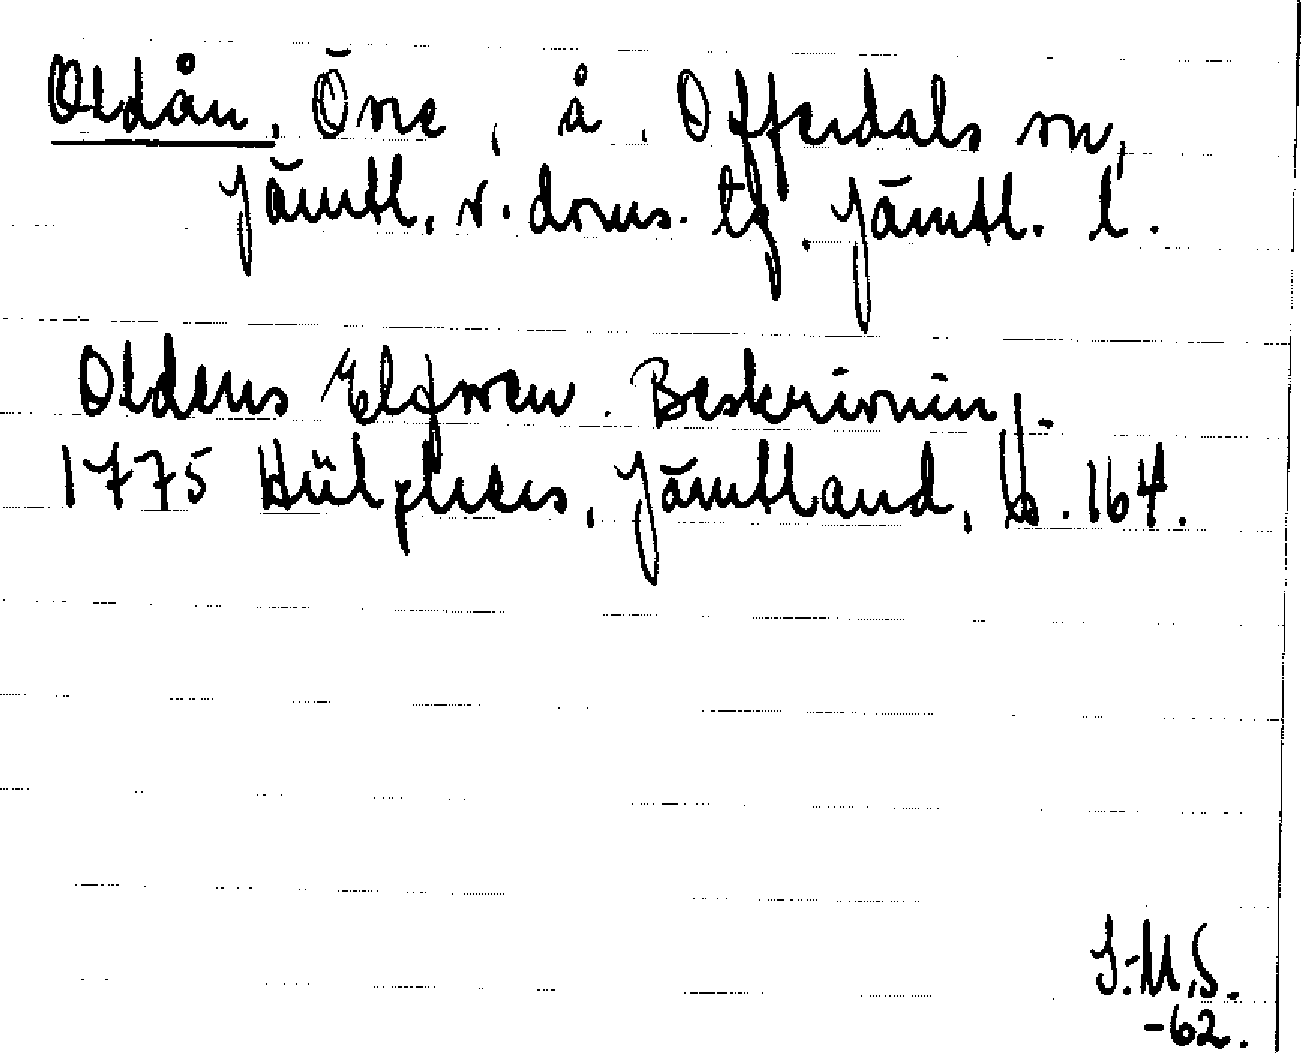 Oldån, Övre, å, Offerdals sn,
Jämtl. v. doms. tg. Jämtl. l.
Oldens Elfwen. Beskrivning.
1775 Hülphers, Jämtland, s. 164.
I.-M.S.
-62.